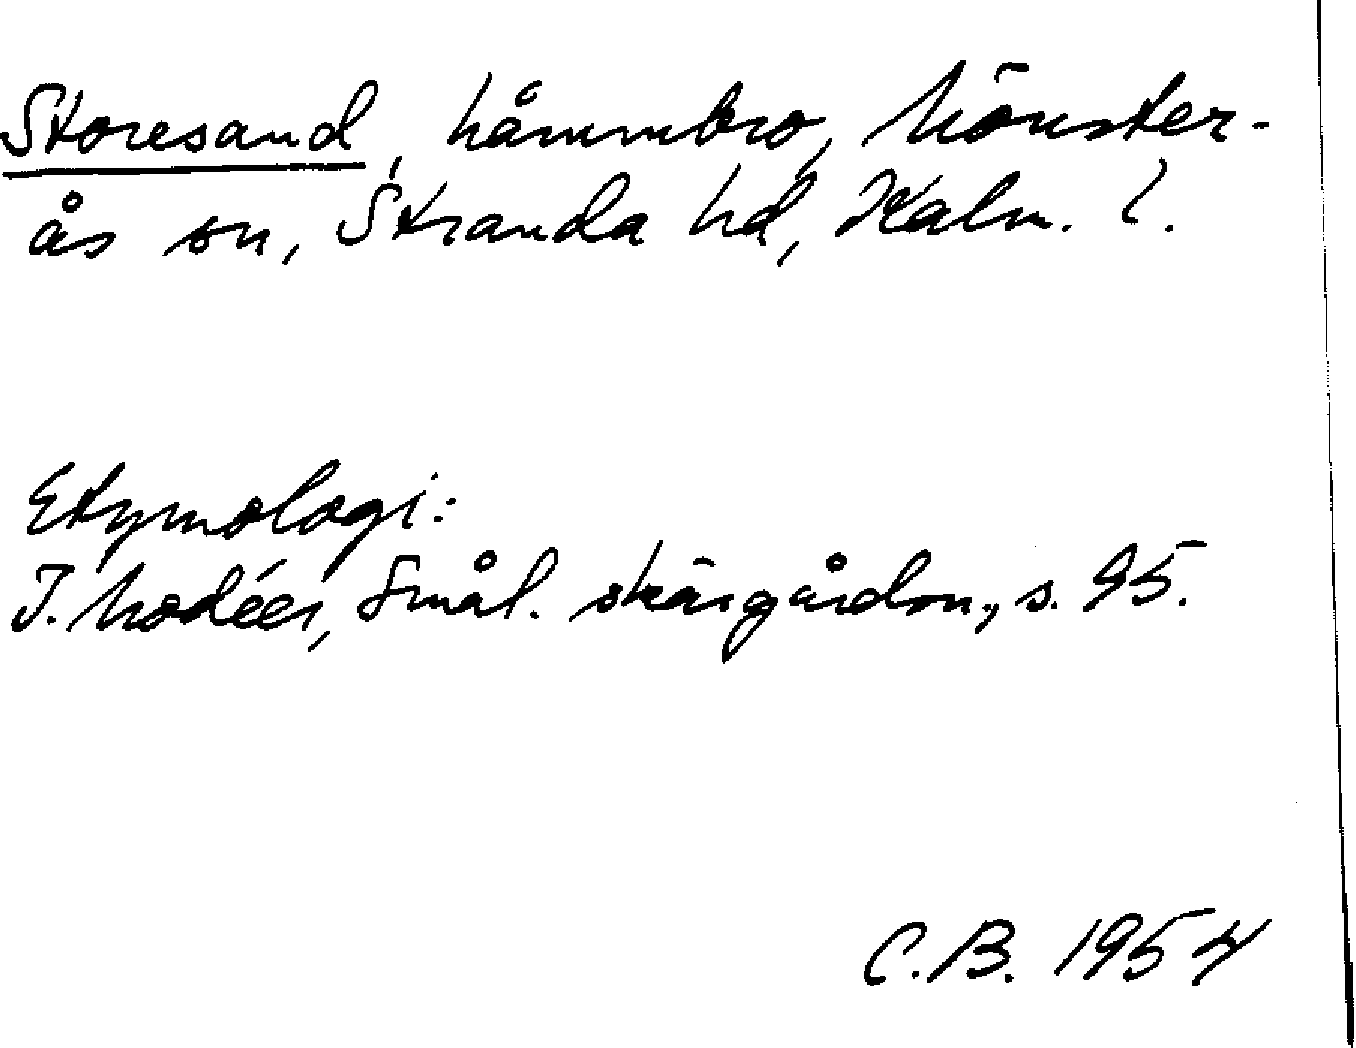 Storesand, håmmbro, Mönster-
ås sn, Stranda hd, Kalm. l.
Etymologi:
I. Modéer, Smål. skärgårdsn., s. 95.
C.B. 1954